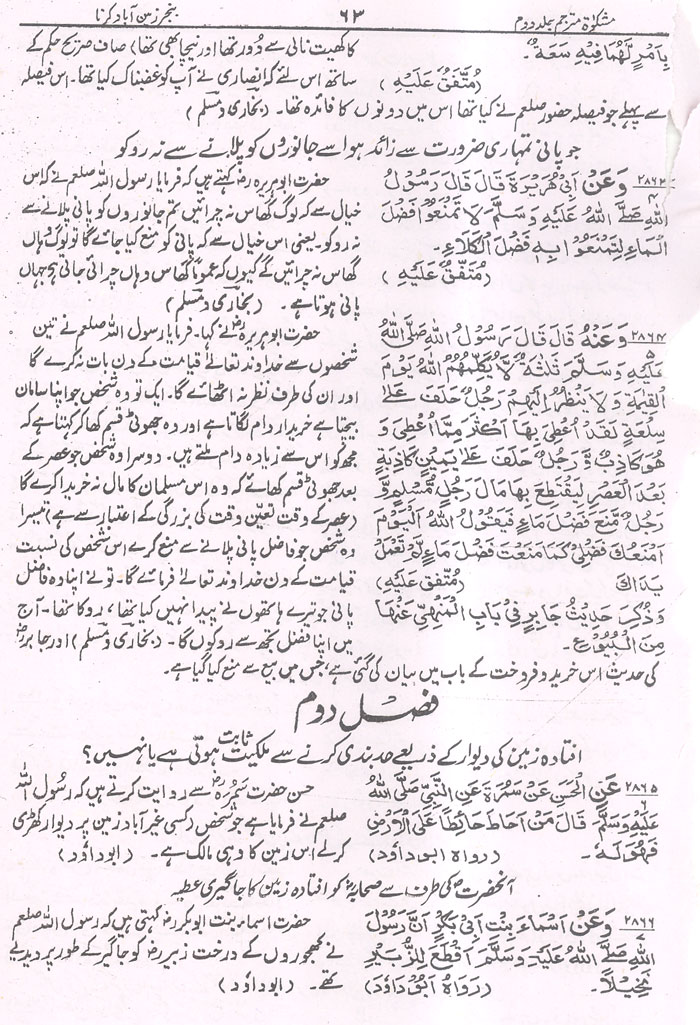 مشکوٰۃ مترجم جلد دوم
۶۳
بنجر زمین آباد کرنا
بِأَمْرٍ لَّهُمَا فِيهِ سَعَةٌ۔
(مُتَّفَقٌ عَلَيْهِ)
کا کھیت نالی سے دُور تھا اور نیچا بھی تھا) صاف صریح حکم کے
ساتھ اس لئے کہ انصاری نے آپ کو غضبناک کیا تھا۔ اس فیصلہ
سے پہلے جو فیصلہ حضور صلعم نے کیا تھا اس میں دونوں کا فائدہ تھا۔ (بخاری و مسلم)
جو پانی تمہاری ضرورت سے زائد ہو اسے جانوروں کو پلانے سے نہ روکو
۲۸۶۳ وَعَنْ اَبِیْ هُرَيْرَةَ قَالَ قَالَ رَسُوْلُ
۴
اللهِ صَلَّى اللهُ عَلَيْهِ وَسَلَّمَ لَا تَمْنَعُوْا فَضْلَ
الْمَاءِ لِتَمْنَعُوْا بِهٖ فَضْلَ الْكَلَاءِ۔
(مُتَّفَقٌ عَلَيْهِ)
حضرت ابوہریرہ رض کہتے ہیں کہ فرمایا رسول اللہ صلعم نے کہ اس
خیال سے کہ لوگ گھاس نہ چرائیں تم جانوروں کو پانی پلانے سے
نہ روکو۔ یعنی اس خیال سے کہ پانی کو منع کیا جائے گا تو لوگ وہاں
گھاس نہ چرائیں گے کیوں کہ عموماً گھاس وہاں چرائی جاتی ہے جہاں
پانی ہوتا ہے۔ (بخاری و مسلم)
۲۸۶۴ وَعَنْهُ قَالَ قَالَ رَسُوْلُ اللهِ صَلَّى اللهُ
۵
عَلَيْهِ وَسَلَّمَ ثَلٰثَةٌ لَّا يُكَلِّمُهُمُ اللهُ يَوْمَ
الْقِيٰمَةِ وَلَا يَنْظُرُ اِلَيْهِمْ رَجُلٌ حَلَفَ عَلٰى
سِلْعَةٍ لَقَدْ اُعْطِیَ بِهَا اَكْثَرَ مِمَّا اُعْطِیَ وَ
هُوَ كَاذِبٌ وَّ رَجُلٌ حَلَفَ عَلٰى يَمِيْنٍ كَاذِبَةٍ
بَعْدَ الْعَصْرِ لِيَقْتَطِعَ بِهَا مَالَ رَجُلٍ مُّسْلِمٍ وَّ
رَجُلٌ مَّنَعَ فَضْلَ مَاءٍ فَيَقُوْلُ اللهُ الْيَوْمَ
اَمْنَعُكَ فَضْلِیْ كَمَا مَنَعْتَ فَضْلَ مَاءٍ لَّمْ تَعْمَلْ
يَدَاكَ (مُتَّفَقٌ عَلَيْهِ)
وَذُكِرَ حَدِيْثُ جَابِرٍ فِیْ بَابِ الْمَنْهِیِّ عَنْهَا
مِنَ الْبُيُوْعِ۔
حضرت ابوہریرہ رض نے کہا۔ فرمایا رسول اللہ صلعم نے تین
شخصوں سے خداوند تعالیٰ قیامت کے دن بات نہ کرے گا
اور ان کی طرف نظر نہ اٹھائے گا۔ ایک تو وہ شخص جو اپنا سامان
بیچتا ہے خریدار دام لگاتا ہے اور وہ جھوٹی قسم کھا کر کہتا ہے کہ
مجھ کو اس سے زیادہ دام ملتے ہیں۔ دوسرا وہ شخص جو عصر کے
بعد جھوٹی قسم کھائے کہ وہ اس مسلمان کا مال نہ خریدا کرے گا
(عصر کے وقت تعیّن وقت کی بزرگی کے اعتبار سے ہے) تیسرا
وہ شخص جو فاضل پانی پلانے سے منع کرے اس شخص کی نسبت
قیامت کے دن خداوند تعالیٰ فرمائے گا۔ تو نے اپنا وہ فاضل
پانی جو تیرے ہاتھوں نے پیدا نہیں کیا تھا، روکا تھا۔ آج
میں اپنا فضل تجھ سے روکوں گا۔ (بخاری و مسلم) اور جابر رض
کی حدیث اس خرید و فروخت کے باب میں بیان کی گئی ہے، جس میں بیع سے منع کیا گیا ہے۔
فصل دوم
افتادہ زمین کی دیوار کے ذریعے حد بندی کرنے سے ملکیت ثابت ہوتی ہے یا نہیں؟
۲۸۶۵ عَنِ الْحَسَنِ عَنْ سَمُرَةَ عَنِ النَّبِیِّ صَلَّى اللهُ
۶
عَلَيْهِ وَسَلَّمَ۔ قَالَ مَنْ اَحَاطَ حَائِطًا عَلَى الْاَرْضِ
فَهُوَ لَهٗ۔ (رواہ ابو داود)
حسن حضرت سَمُرَہ رض سے روایت کرتے ہیں کہ رسول اللہ
صلعم نے فرمایا ہے جو شخص (کسی غیر آباد زمین پر دیوار کھڑی
کر لے اس زمین کا وہی مالک ہے۔ (ابو داود)
آنحضرت ص کی طرف سے صحابہ رض کو افتادہ زمین کا جاگیری عطیہ
۲۸۶۶ وَعَنْ اَسْمَاءَ بِنْتِ اَبِیْ بَكْرٍ اَنَّ رَسُوْلَ
۷
اللهِ صَلَّى اللهُ عَلَيْهِ وَسَلَّمَ اَقْطَعَ لِلزُّبَيْرِ
نَخِيْلًا۔ (رَوَاهُ اَبُوْ دَاوٗدَ)
حضرت اسماء بنت ابوبکر رض کہتی ہیں کہ رسول اللہ صلعم
نے کھجوروں کے درخت زبیر رض کو جاگیر کے طور پر دیدیے
تھے۔ (ابو داود)